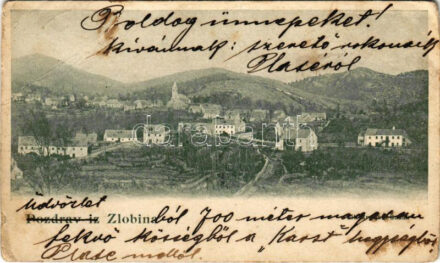 Boldog ünnepeket!
kívánnak: szerető rokonaik
Plaséról
darabanth
Üdvözlet
Pozdrav iz Zlobina
ból 700 méter magasan
fekvő községből a "Karst" hegységből
Plase mellől.